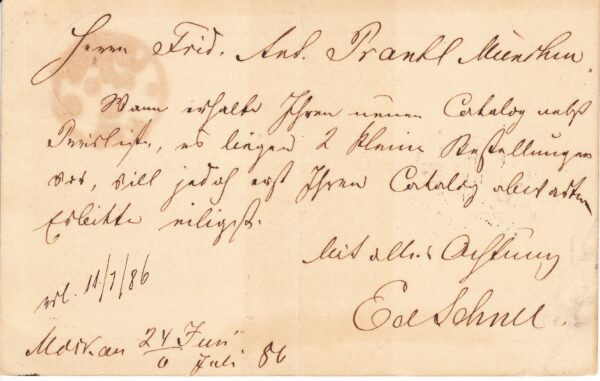 Herrn Frid. Ant. Prantl München.
Wann erhalte Ihren neuen Catalog nebst
Preisliste, es liegen 2 kleine Bestellungen
vor, will jedoch erst Ihren Catalog abwarten
Erbitte eiligst.
Mit aller Achtung
Ed Schnel.
erl. 11/7/86
Moskau 24 Juni
6 Juli 86